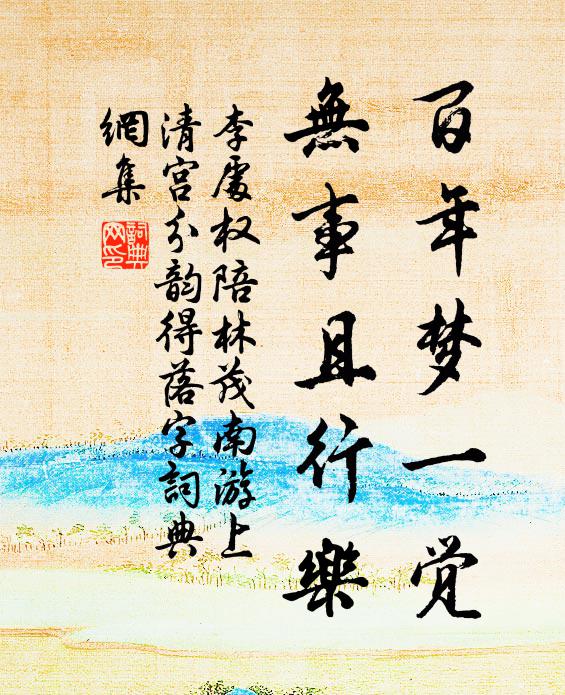 百年梦一觉
無事且行樂
李處权陪林茂南游上
清宫分韵得落字詞典
網集
詞典
网印